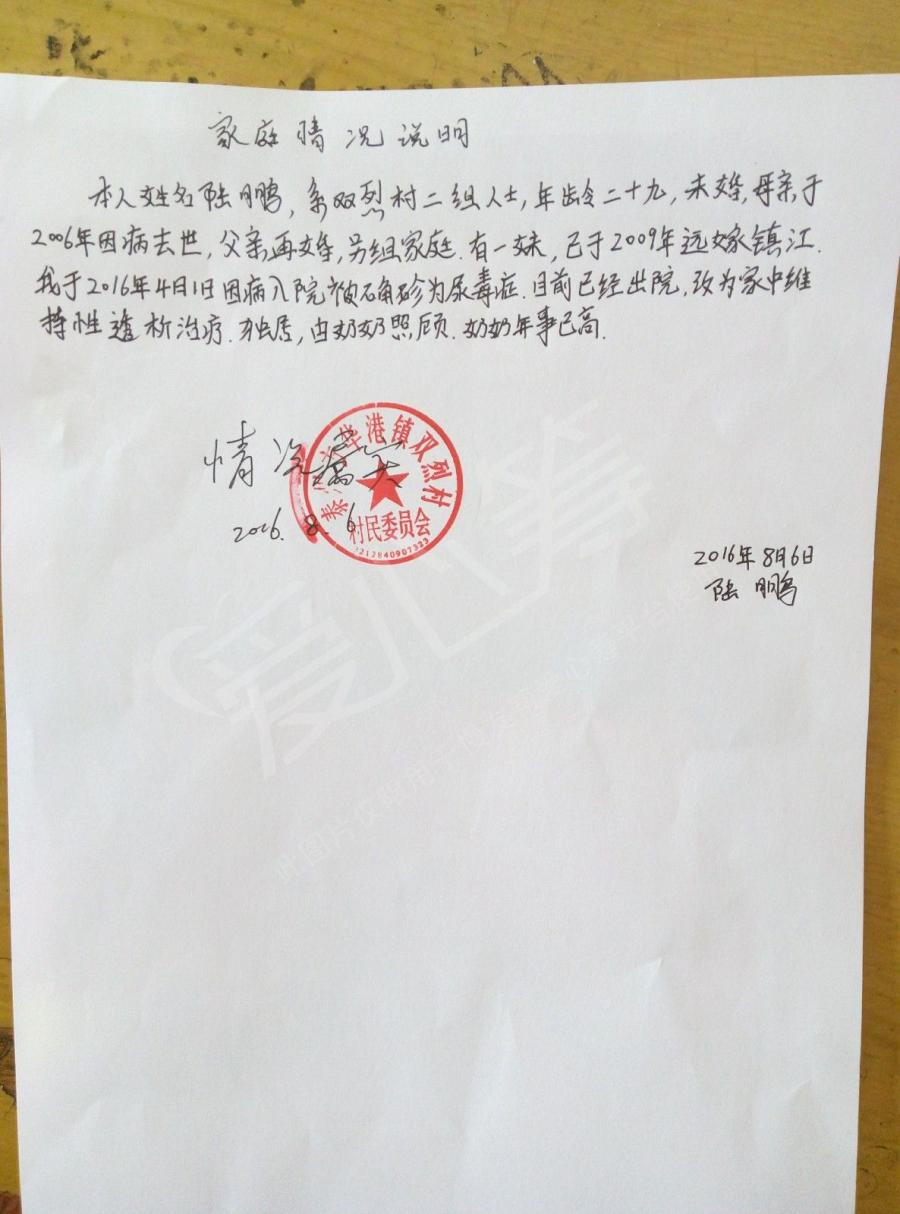 家庭情况说明
本人姓名陆鹏,系双烈村二组人士,年龄二十九,未婚,母亲于
2006年因病去世,父亲再婚,另组家庭.有一妹,已于2009年远嫁镇江.
我于2016年4月1日因病入院被确诊为尿毒症.目前已经出院,改为家中维
持性透析治疗.独居,由奶奶照顾.奶奶年事已高.
情况属实
华港镇双烈村
村民委员会
3212840907323
2016.8.6
2016年8月6日
陆鹏
爱心筹
此图片仅限用于